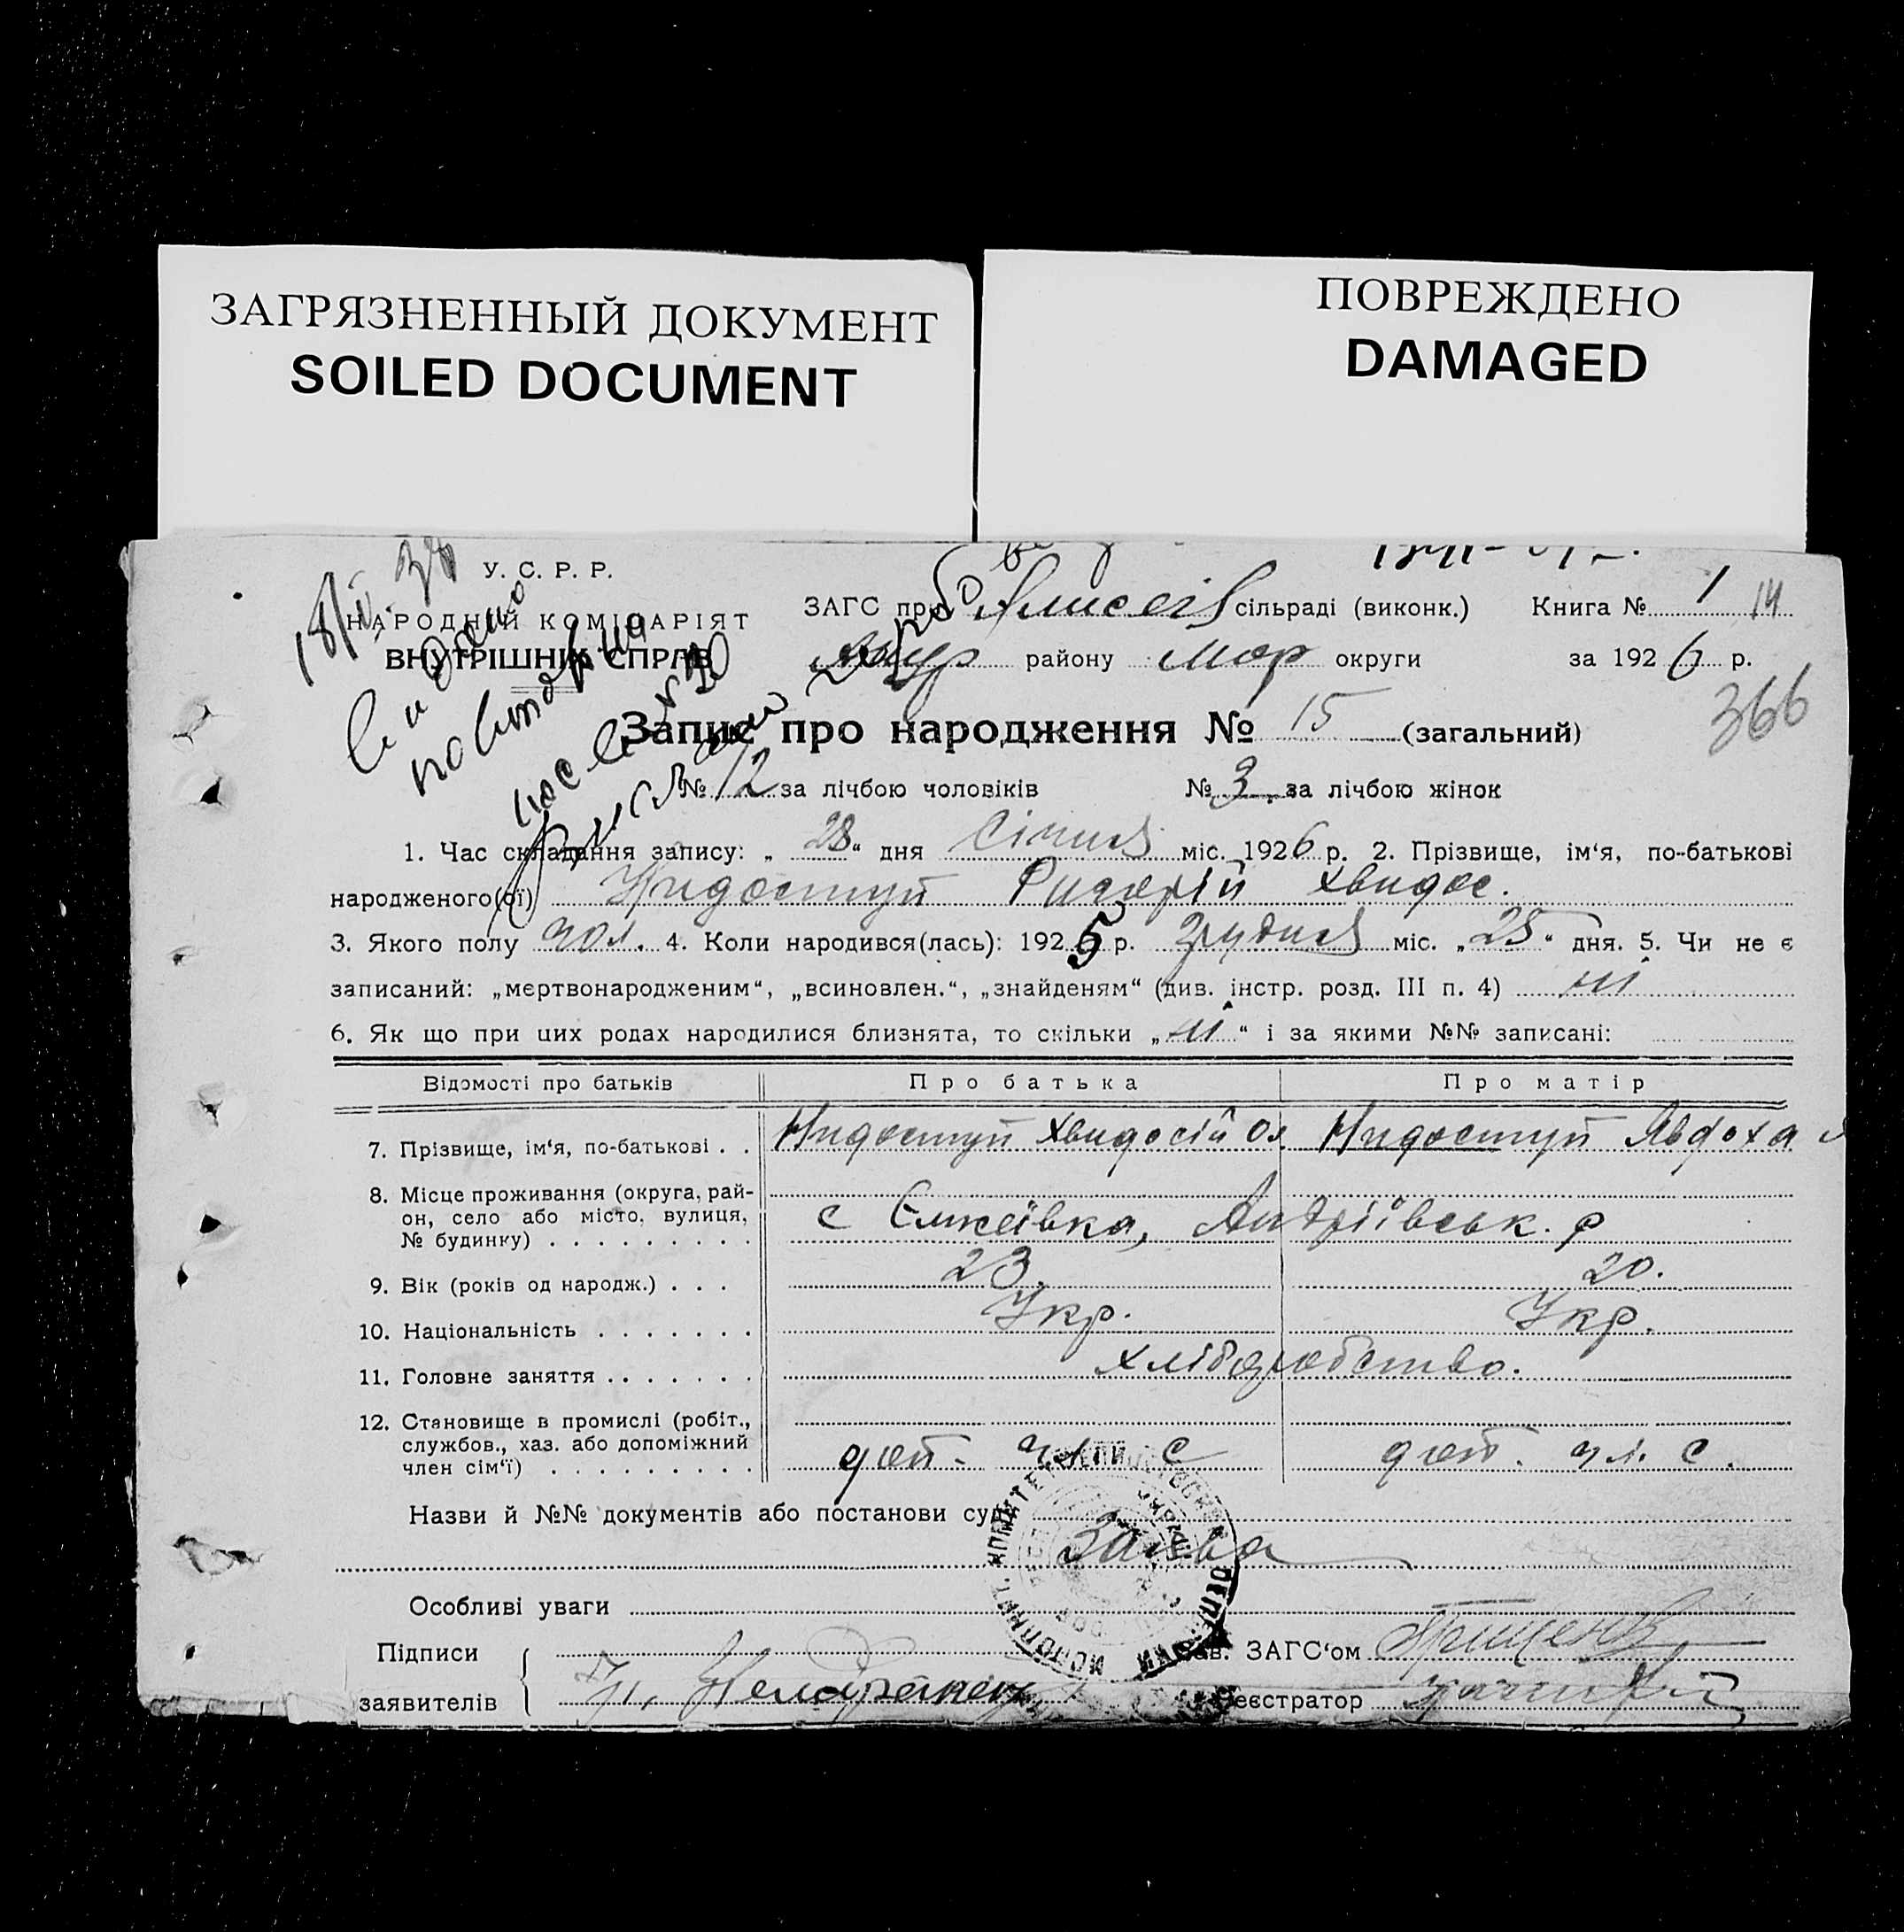 ЗАГРЯЗНЕННЫЙ ДОКУМЕНТ
SOILED DOCUMENT
ПОВРЕЖДЕНО
DAMAGED
У. С. Р. Р.
НАРОДНІЙ КОМІСАРІЯТ
ВНУТРІШНІХ СПРАВ
18/II. 38
видано
повторно
ЗАГС при сільраді (виконк.) Книга № 1 14
району Мар округи за 1926 р.
366
Запис про народження № 15 (загальний)
№ 12 за лічбою чоловіків № 3 за лічбою жінок
1. Час складання запису: „ 28 “ дня Січня міс. 1926 р. 2. Прізвище, ім‘я, по-батькові
народженого(ої) Нидоступ Григорій Хвидос.
3. Якого полу чол. 4. Коли народився(лась): 1925 р. грудня міс. „ 25 “ дня. 5. Чи не є
записаний: „мертвонародженим“, „всиновлен.“, „знайденям“ (див. інстр. розд. III п. 4) ні
6. Як що при цих родах народилися близнята, то скільки „ ні “ і за якими №№ записані:
Відомості про батьків Про батька Про матір
7. Прізвище, ім‘я, по-батькові . . Нидоступ Хвидосій Ол Нидоступ Явдоха
8. Місце проживання (округа, рай-
он, село або місто, вулиця,
№ будинку) . . . . . . . . . с Єлисеївка, Андріївськ. р
9. Вік (років од народж.) . . . 23. 20.
10. Національність . . . . . . . Укр. Укр.
11. Головне заняття . . . . . . . хліборобство.
12. Становище в промислі (робіт.,
службов., хаз. або допоміжний
член сім‘ї) . . . . . . . . . доп. чл. с доп. чл. с.
Назви й №№ документів або постанови суду
Заява
Особливі уваги
Підписи Зав. ЗАГС‘ом
заявителів Реєстратор